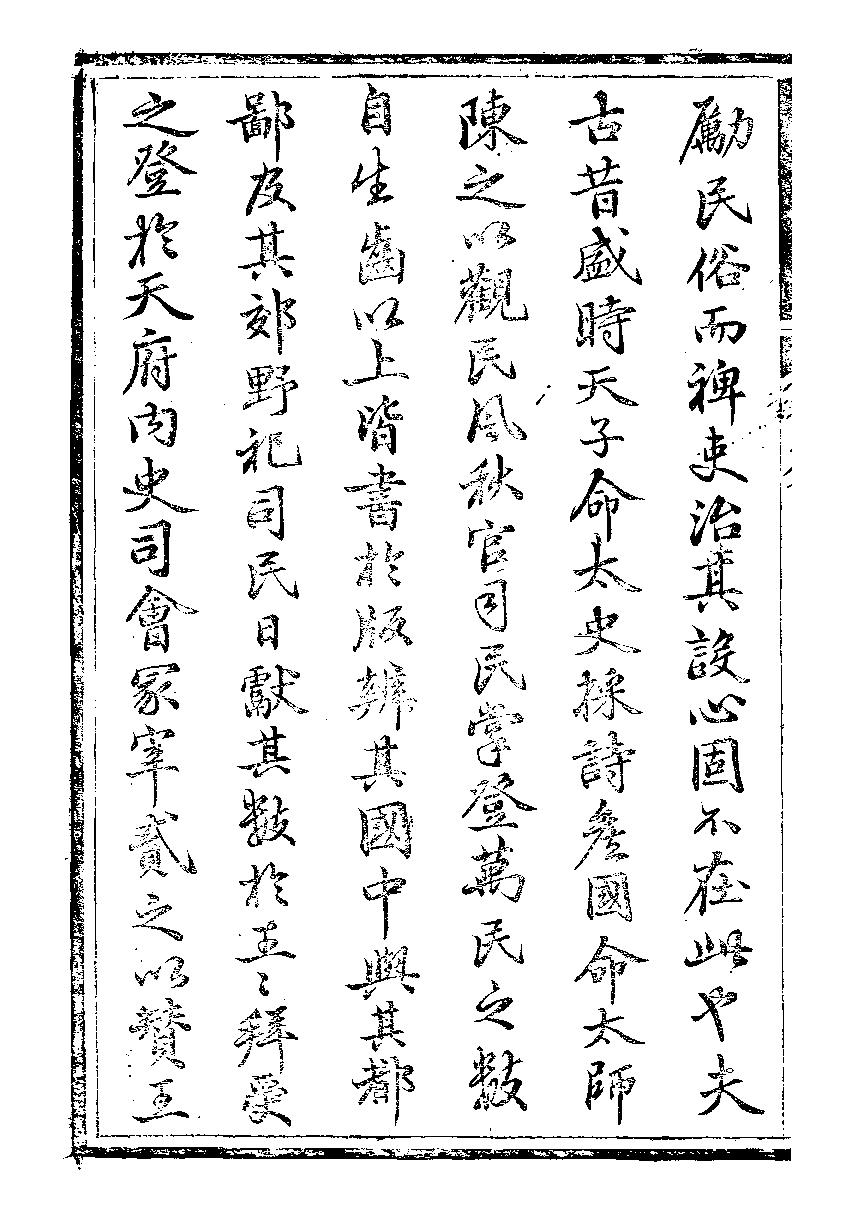 勵民俗而裨吏治其設心固不在此也夫
古昔盛時天子命太史採詩叄國命太師
陳之以觀民風秋官司民掌登萬民之數
自生齒以上皆書於版辨其國中與其都
鄙及其郊野祀司民日獻其數於王〻拜受
之登於天府內史司會冢宰貳之以贊王